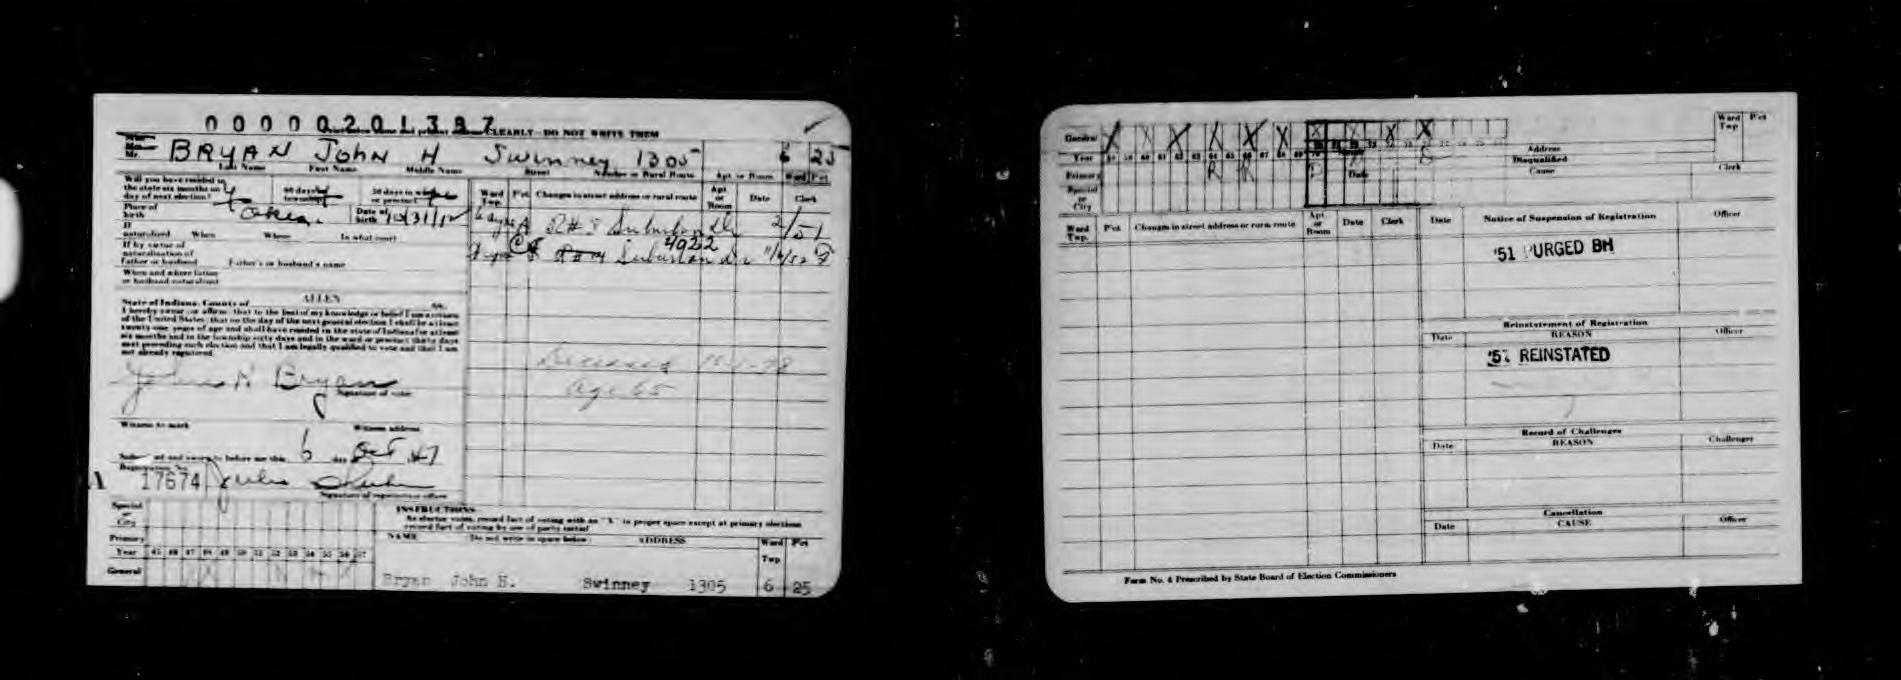 00000201387
CLEARLY - DO NOT WRITE THEM
Mr. BRYAN JOHN H Swinney 1305 6 25
Last Name First Name Middle Name Street Number or Rural Route Apt or Room Ward Pct
Will you have resided in
the state six months on
day of next election?
60 days in
township
30 days in ward
or precinct
Place of
birth
Date of
birth 10/31/12
If
naturalized When Where In what court
If by virtue of
naturalization of
Father or husband Father's or husband's name
When and where father
or husband naturalized
Ward Twp. P'ct Changes in street address or rural route Apt or Room Date Clerk
Suburban Dr 2/51
4922
Suburban Dr
State of Indiana, County of ALLEN ss.
I hereby swear or affirm that to the best of my knowledge or belief I am a citizen
of the United States; that on the day of the next general election I shall be at least
twenty-one years of age and shall have resided in the state of Indiana for at least
six months and in the township sixty days and in the ward or precinct thirty days
next preceding such election and that I am legally qualified to vote and that I am
not already registered
Deceased
age 65
John H Bryan
Signature of voter
Witness to mark Witness address
Subscribed and sworn to before me this 6 day Oct 47
Registration No.
A 17674
Signature of registration officer
Special
or
City
Primary
Year 45 46 47 48 49 50 51 52 53 54 55 56 57
General
INSTRUCTIONS
As elector votes, record fact of voting with an "X" in proper space except at primary elections
record fact of voting by use of party initial
NAME Do not write in space below ADDRESS Ward Twp P'ct
Bryan John H. Swinney 1305 6 25
General X X X X X X X X X
Year 58 59 60 61 62 63 64 65 66 67 68 69 70
Primary R R
Special
or
City
Ward Twp P'ct
Address
Disqualified
Date Cause Clerk
Ward Twp. P'ct Changes in street address or rural route Apt or Room Date Clerk
Date Notice of Suspension of Registration Officer
'51 PURGED BH
Reinstatement of Registration
Date REASON Officer
REINSTATED
Record of Challenges
Date REASON Challenger
Cancellation
Date CAUSE Officer
Form No. 4 Prescribed by State Board of Election Commissioners